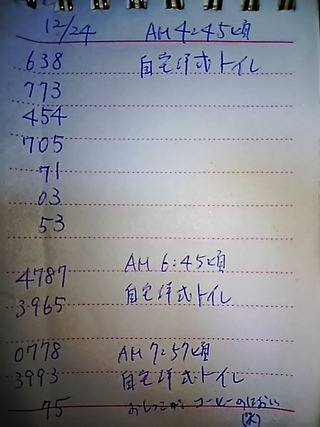 12/24 AM 4:45頃
638 自宅洋式トイレ
773
454
705
71
03
53
AM 6:45頃
4787 自宅洋式トイレ
3965
0778 AM 7:57頃
3993 自宅洋式トイレ
75 おしっこがコーヒーのにおい
(米)